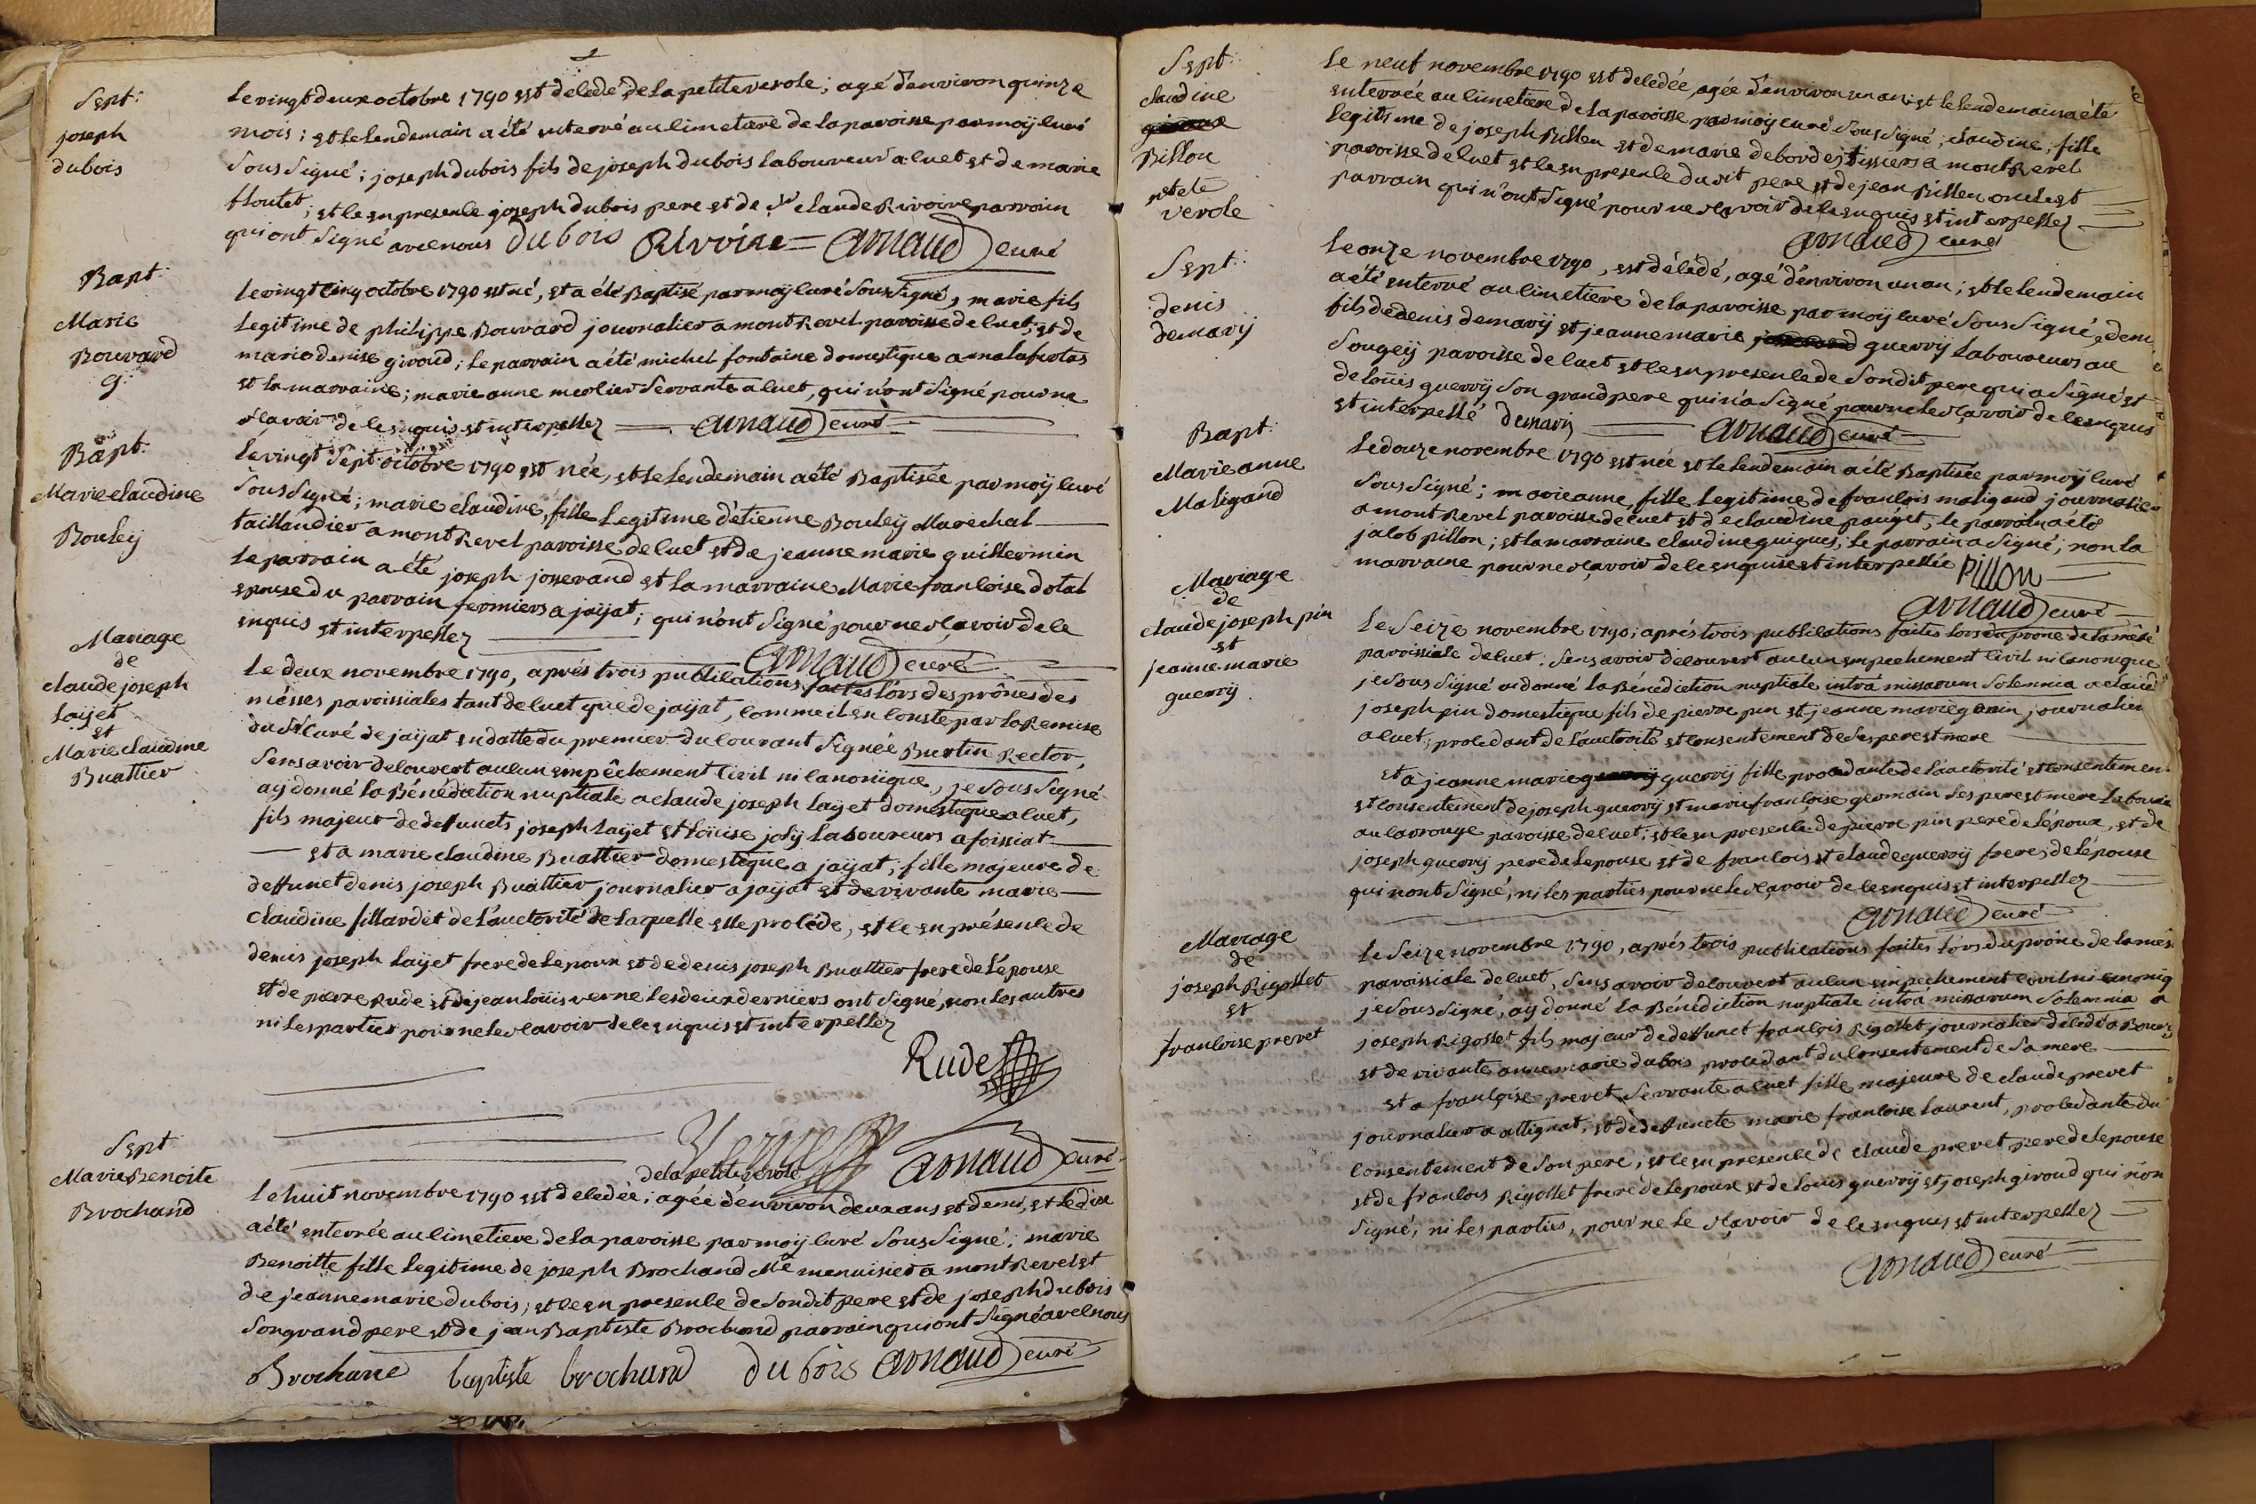 Sept:
joseph
dubois
Le vingt deux octobre 1790 est decedé de la petite verole; agé d'environ quinze
mois; et le lendemain a été enterré au cimetiere de la paroisse par moÿ curé
Sous Signé; joseph dubois fils de joseph dubois laboureur a cuet et de marie
floutet; et ce en presence joseph dubois pere et de Sr claude Rivoire parrain
qui ont Signé avec nous dubois Rivoire arnaud curé
Bapt:
Marie
Bouvard
g
Le vingt cinq octobre 1790 est né, et a été Baptisé par moÿ curé Sous Signé, marie fils
Legitime de philippe Bouvard journalier a montRevel paroisse de cuet; et de
marie denise giroud; le parrain a été michel fontaine domestique a malafretas
et la marraine; marie anne meolier Servante a cuet, qui n'ont Signé pour ne
sçavoir de ce enquis et interpellez arnaud curé
Bapt:
Marie claudine
Bouleÿ
Le vingt Sept octobre 1790 est née, et le lendemain a été Baptisée par moÿ curé
Sous Signé; marie claudine, fille Legitime d'étienne Bouleÿ Marechal
taillandier a montRevel paroisse de cuet et de jeanne marie guillermin
Le parrain a été joseph josserand et la marraine Marie francoise dotal
epouse du parrain fermiers a jaÿat; qui n'ont Signé pour ne sçavoir de ce
enquis et interpellez
arnaud curé
Mariage
de
claude joseph
laÿet
et
Marie claudine
Buattier
Le deux novembre 1790, aprés trois publications faites lors des prônes des
mésses paroissiales tant de cuet que de jaÿat, comme il en conste par la Remise
du Sr curé de jaÿat en datte du premier du courant Signée Burtin Rector,
Sens avoir decouvert aucun empêchement civil ni canonique, je Sous Signé
aÿ donné la Bénédiction nuptiale a claude joseph laÿet domestique a cuet,
fils majeur de deffuncts joseph laÿet et loüise jolÿ laboureurs a foissiat
et a marie claudine Buattier domestique a jaÿat; fille majeure de
deffunct denis joseph Buattier journalier a jaÿat et de vivante marie
claudine fillardet de l'auctorité de laquelle elle procéde, et ce en présence de
denis joseph laÿet frere de l'epoux et de denis joseph Buattier frere de l'épouse
et de pierre Rude et de jean loüis verne les deux derniers ont Signé, non les autres
ni les parties pour ne le sçavoir de ce enquis et interpellez
Rude
Verne arnaud curé
Sept
Marie Benoite
Brochand
de la petite verole
Le huit novembre 1790 est decedée; agée d'environ deux ans et demi, et le dix
a été enterrée au cimetiere de la paroisse par moÿ curé Sous Signé; marie
Benoitte fille Legitime de joseph Brochand Me menuisier a montRevel et
de jeanne marie dubois; et ce en presence de Son dit pere et de joseph dubois
Son grand pere et de jean Baptiste Brochand parrain qui ont Signé avec nous
Brochand baptiste brochand du bois arnaud curé
Sept:
claudine
Pillon
petite
verole
Le neuf novembre 1790 est decedée, agée d'environ un an; et le lendemain a été
enterrée au cimetiere de la paroisse par moy curé Sous Signé; claudine, fille
Legitime de joseph Pillon et de marie debordes tissiers a montRevel
paroisse de cuet et ce en presence du dit pere et de jean Pillon oncle et
parrain qui n'ont Signé pour ne sçavoir de ce enquis et interpellez
arnaud curé
Sept:
denis
demarÿ
Le onze novembre 1790, est décédé, agé d'environ un an; et le lendemain
a été enterré au cimetiere de la paroisse par moÿ curé Sous Signé, denis
fils de denis demarÿ et jeanne marie guerrÿ Laboureurs au
Sougeÿ paroisse de cuet et ce en presence de Son dit pere qui a Signé et
de loüis guerrÿ Son grand pere qui n'a Signé pour ne le sçavoir de ce enquis
et interpellé demarÿ arnaud curé
Bapt:
Marie anne
Maligand
Le douze novembre 1790 est née et le lendemain a été Baptisée par moÿ curé
Sous Signé; marie anne, fille Legitime de francois maligand journalier
a montRevel paroisse de cuet et de claudine pauget, le parrain a été
jacob pillon; et la marraine claudine guigues, le parrain a Signé; non la
marraine pour ne sçavoir de ce enquise et interpellée Pillon
arnaud curé
Mariage
de
claude joseph pin
et
jeanne marie
guerrÿ
Le Seize novembre 1790; aprés trois publications faites lors du prone de la mésse
paroissiale de cuet: Sens avoir decouvert aucun empechement civil ni canonique
je Sous Signé ai donné la Bénédiction nuptiale intrá missarum Solemnia a claude
joseph pin domestique fils de pierre pin et jeanne marie journalier
a cuet; procedant de l'auctorité et consentement de Ses pere et mere
et a jeanne marie guerrÿ fille procedante de l'auctorité et consentement
et consentement de joseph guerrÿ et marie francoise germain Ses pere et mere laboureurs
au larrouge paroisse de cuet; et ce en presence de pierre pin pere de l'époux, et de
joseph guerrÿ pere de l'epouse et de francois et claude guerrÿ freres de l'épouse
qui n'ont Signé, ni les parties pour ne le sçavoir de ce enquis et interpellez
arnaud curé
Mariage
de
joseph Rigollet
et
francoise prevet
Le Seize novembre 1790, aprés trois publications faites lors du prône de la mésse
paroissiale de cuet, Sens avoir decouvert aucun empechement civil ni canoniq
je Sous Signé, aÿ donné la Bénédiction nuptiale intrá missarum Solemnia a
joseph Rigollet fils majeur de deffunct francois Rigollet journalier décédé a Bourg
et de vivante anne marie dubois procedant du consentement de Sa mere
et a francoise prevet Servante a cuet fille majeure de claude prevet
journalier a attignat, et de deffuncte marie francoise Laurent, procedante du
consentement de Son pere; et ce en presence de claude prevet pere de l'epouse
et de francois Rigollet frere de l'epoux et de loüis guerrÿ et joseph giroud qui n'on
Signé, ni les parties, pour ne le sçavoir de ce enquis et interpellez
arnaud curé